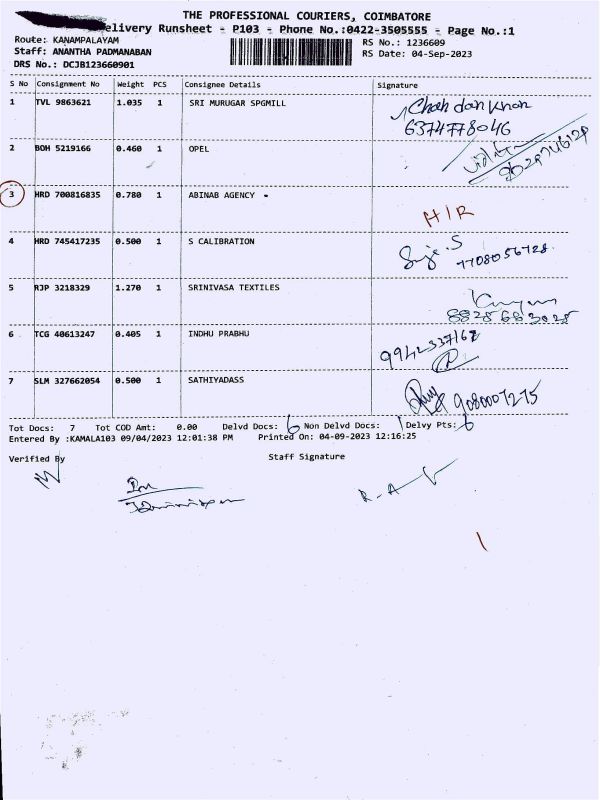 THE PROFESSIONAL COURIERS, COIMBATORE
elivery Runsheet - P103 - Phone No.:0422-3505555 - Page No.:1
Route: KANAMPALAYAM RS No.: 1236609
Staff: ANANTHA PADMANABAN RS Date: 04-Sep-2023
DRS No.: DCJB123660901
S No Consignment No Weight PCS Consignee Details Signature
1 TVL 9863621 1.035 1 SRI MURUGAR SPGMILL Chandan Khan
6374778046
2 BOH 5219166 0.460 1 OPEL
3 HRD 700816835 0.780 1 ABINAB AGENCY -
H/R
4 HRD 745417235 0.500 1 S CALIBRATION
7708056728
5 RJP 3218329 1.270 1 SRINIVASA TEXTILES
6 TCG 40613247 0.405 1 INDHU PRABHU
9942337162
7 SLM 327662054 0.500 1 SATHIYADASS
9080007275
Tot Docs: 7 Tot COD Amt: 0.00 Delvd Docs: 6 Non Delvd Docs: 1 Delvy Pts: 6
Entered By :KAMALA103 09/04/2023 12:01:38 PM Printed On: 04-09-2023 12:16:25
Verified By Staff Signature